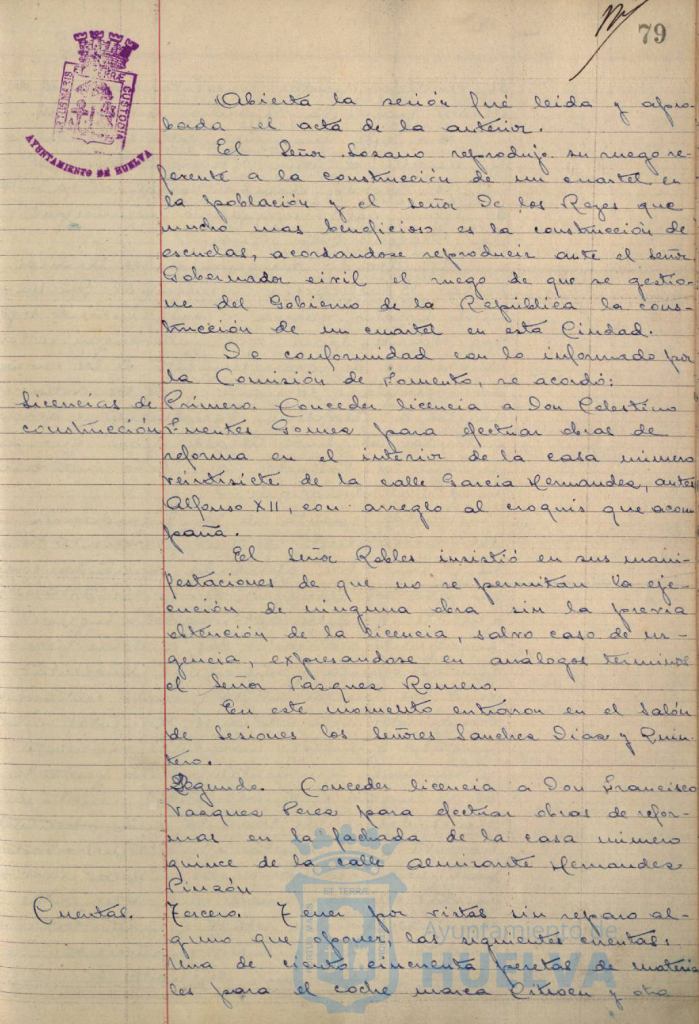 79
PORTUS MARIS ET TERRÆ CUSTODIA
AYUNTAMIENTO DE HUELVA
Abierta la sesión fué leida y apro-
bada el acta de la anterior.
El Señor Lozano reproduje su ruego re-
ferente a la construcción de un cuartel en
la población y el señor De los Reyes que
mucho mas beneficioso es la construcción de
escuelas, acordandose reproducir ante el señor
Gobernador civil el ruego de que se gestio-
ne del Gobierno de la República la cons-
trucción de un cuartel en esta Ciudad.
De conformidad con lo informado por
la Comisión de Fomento, se acordó:
Licencias de
construcción
Primero. Conceder licencia a Don Celestino
Fuentes Gomez para efectuar obras de
reforma en el interior de la casa número
veintisiete de la calle Garcia Hernandez, antes
Alfonso XII, con arreglo al croquis que acom
paña.
El Señor Robles insistió en sus mani-
festaciones de que no se permitan la eje-
cución de ninguna obra sin la previa
obtención de la licencia, salvo caso de ur-
gencia, expresandose en análogos terminos
el Señor Vazquez Romero.
En este momento entraron en el Salón
de Sesiones los Señores Sanchez Diaz y Quin-
tero.
Segundo. Conceder licencia a Don Francisco
Vazquez Perez para efectuar obras de refor-
mas en la fachada de la casa número
quince de la calle Almirante Hernandez
Pinzón
Cuentas.
Tercero. Tener por vistas sin reparo al-
guno que oponer, las siguientes cuentas:
Una de ciento cincuenta pesetas de materia
les para el coche marca Citroen y otra
ET TERRÆ
Ayuntamiento de
HUELVA